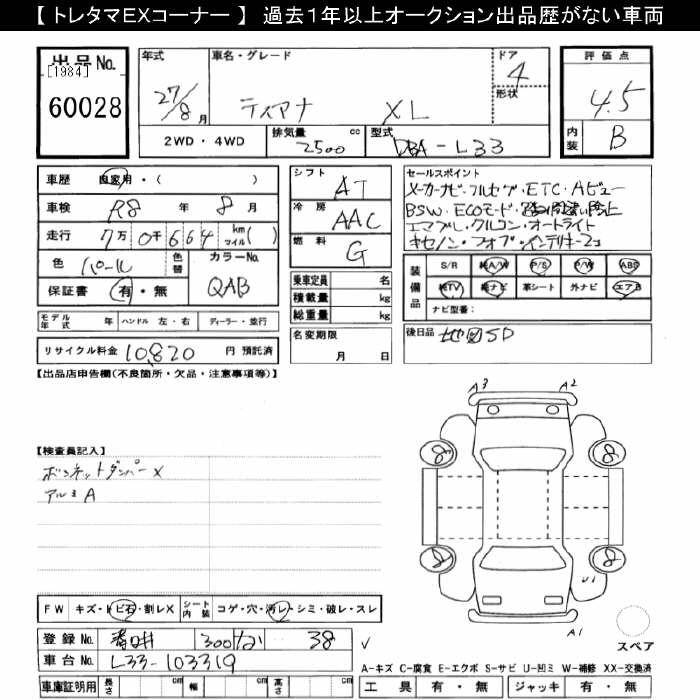 【 トレタマEXコーナー 】 過去1年以上オークション出品歴がない車両
出品No.
[1984]
60028
年式
27/8 月
車名・グレード
ティアナ XL
ドア
4
形状
2WD・4WD
排気量
2500 cc
型式
DBA-L33
評価点
4.5
内装
B
車歴 自家用・( )
車検 R8 年 8 月
走行 7万 0千 6 6 4 km マイル( )
色 パール
色替
カラーNo.
QAB
保証書 有・無
シフト
AT
冷房
AAC
燃料
G
乗車定員 名
積載量 kg
総重量 kg
セールスポイント
メーカーナビ・フルセグ・ETC・Aビュー
BSW・ECOモード・踏み間違い防止
エマブレ・クルコン・オートライト
キセノン・フォグ・インテリキー2コ
装備品
S/R 純A/W P/S P/W ABS
純TV 純ナビ 革シート 外ナビ エアB
ナビ型番:
モデル年式 年 ハンドル 左・右 ディーラー・並行
名変期限
月 日
後日品 地図SD
リサイクル料金 10,820 円 預託済
【出品店申告欄(不良箇所・欠品・注意事項等)】
A3 A2
【検査員記入】
ボンネットダンパーX
アルミA
8 8
8 8
U1
A1
スペア
FW キズ・トビ石・割レX シート内装 コゲ・穴・汚レ・シミ・破レ・スレ
登録No. 春日井 300 な 38
車台No. L33-103319
A-キズ C-腐食 E-エクボ S-サビ U-凹ミ W-補修 XX-交換済
車庫証明用 長さ cm 幅 cm 高さ cm
工具 有・無 ジャッキ 有・無